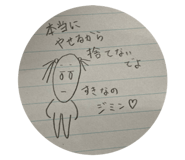 本当に
やせるから
捨てない
でよ
すきなの
ジミン♡